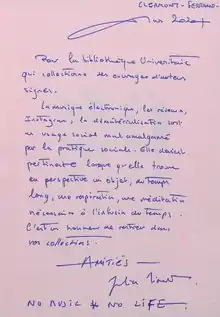 CLERMONT-FERRAND
Pour la bibliothèque Universitaire
qui collectionne des ouvrages d'auteurs
signés.
La musique électronique, les réseaux,
Instagram, la dématérialisation sont
un usage social mal amalgamé
par la pratique sociale. Elle devient
pertinente lorsque qu'elle trouve
en perspective un objet, du temps
long, une respiration, une méditation
nécessaire à l'infusion du temps.
C'est un honneur de rentrer dans
vos collections.
AMITIÉS
NO MUSIC * NO LIFE